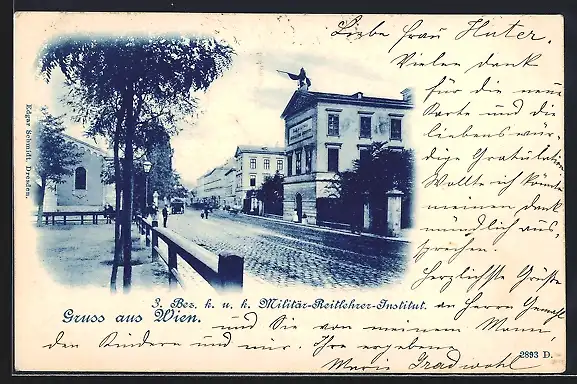 Liebe Frau Huter.
Vielen dank
für die neue
Karte und die
liebenswür-
dige Gratulation
Wollte ich könnte
meinen dank
mündlich aus-
sprechen.
Herzlichste Grüße
an Herrn Gemahl
3. Bez. k. u. k. Militär-Reitlehrer-Institut.
Gruss aus Wien.
und Sie von meinem Mann,
den Kindern und mir. Ihre ergebene
Marie
2893 D.
Edgar Schmidt, Dresden.